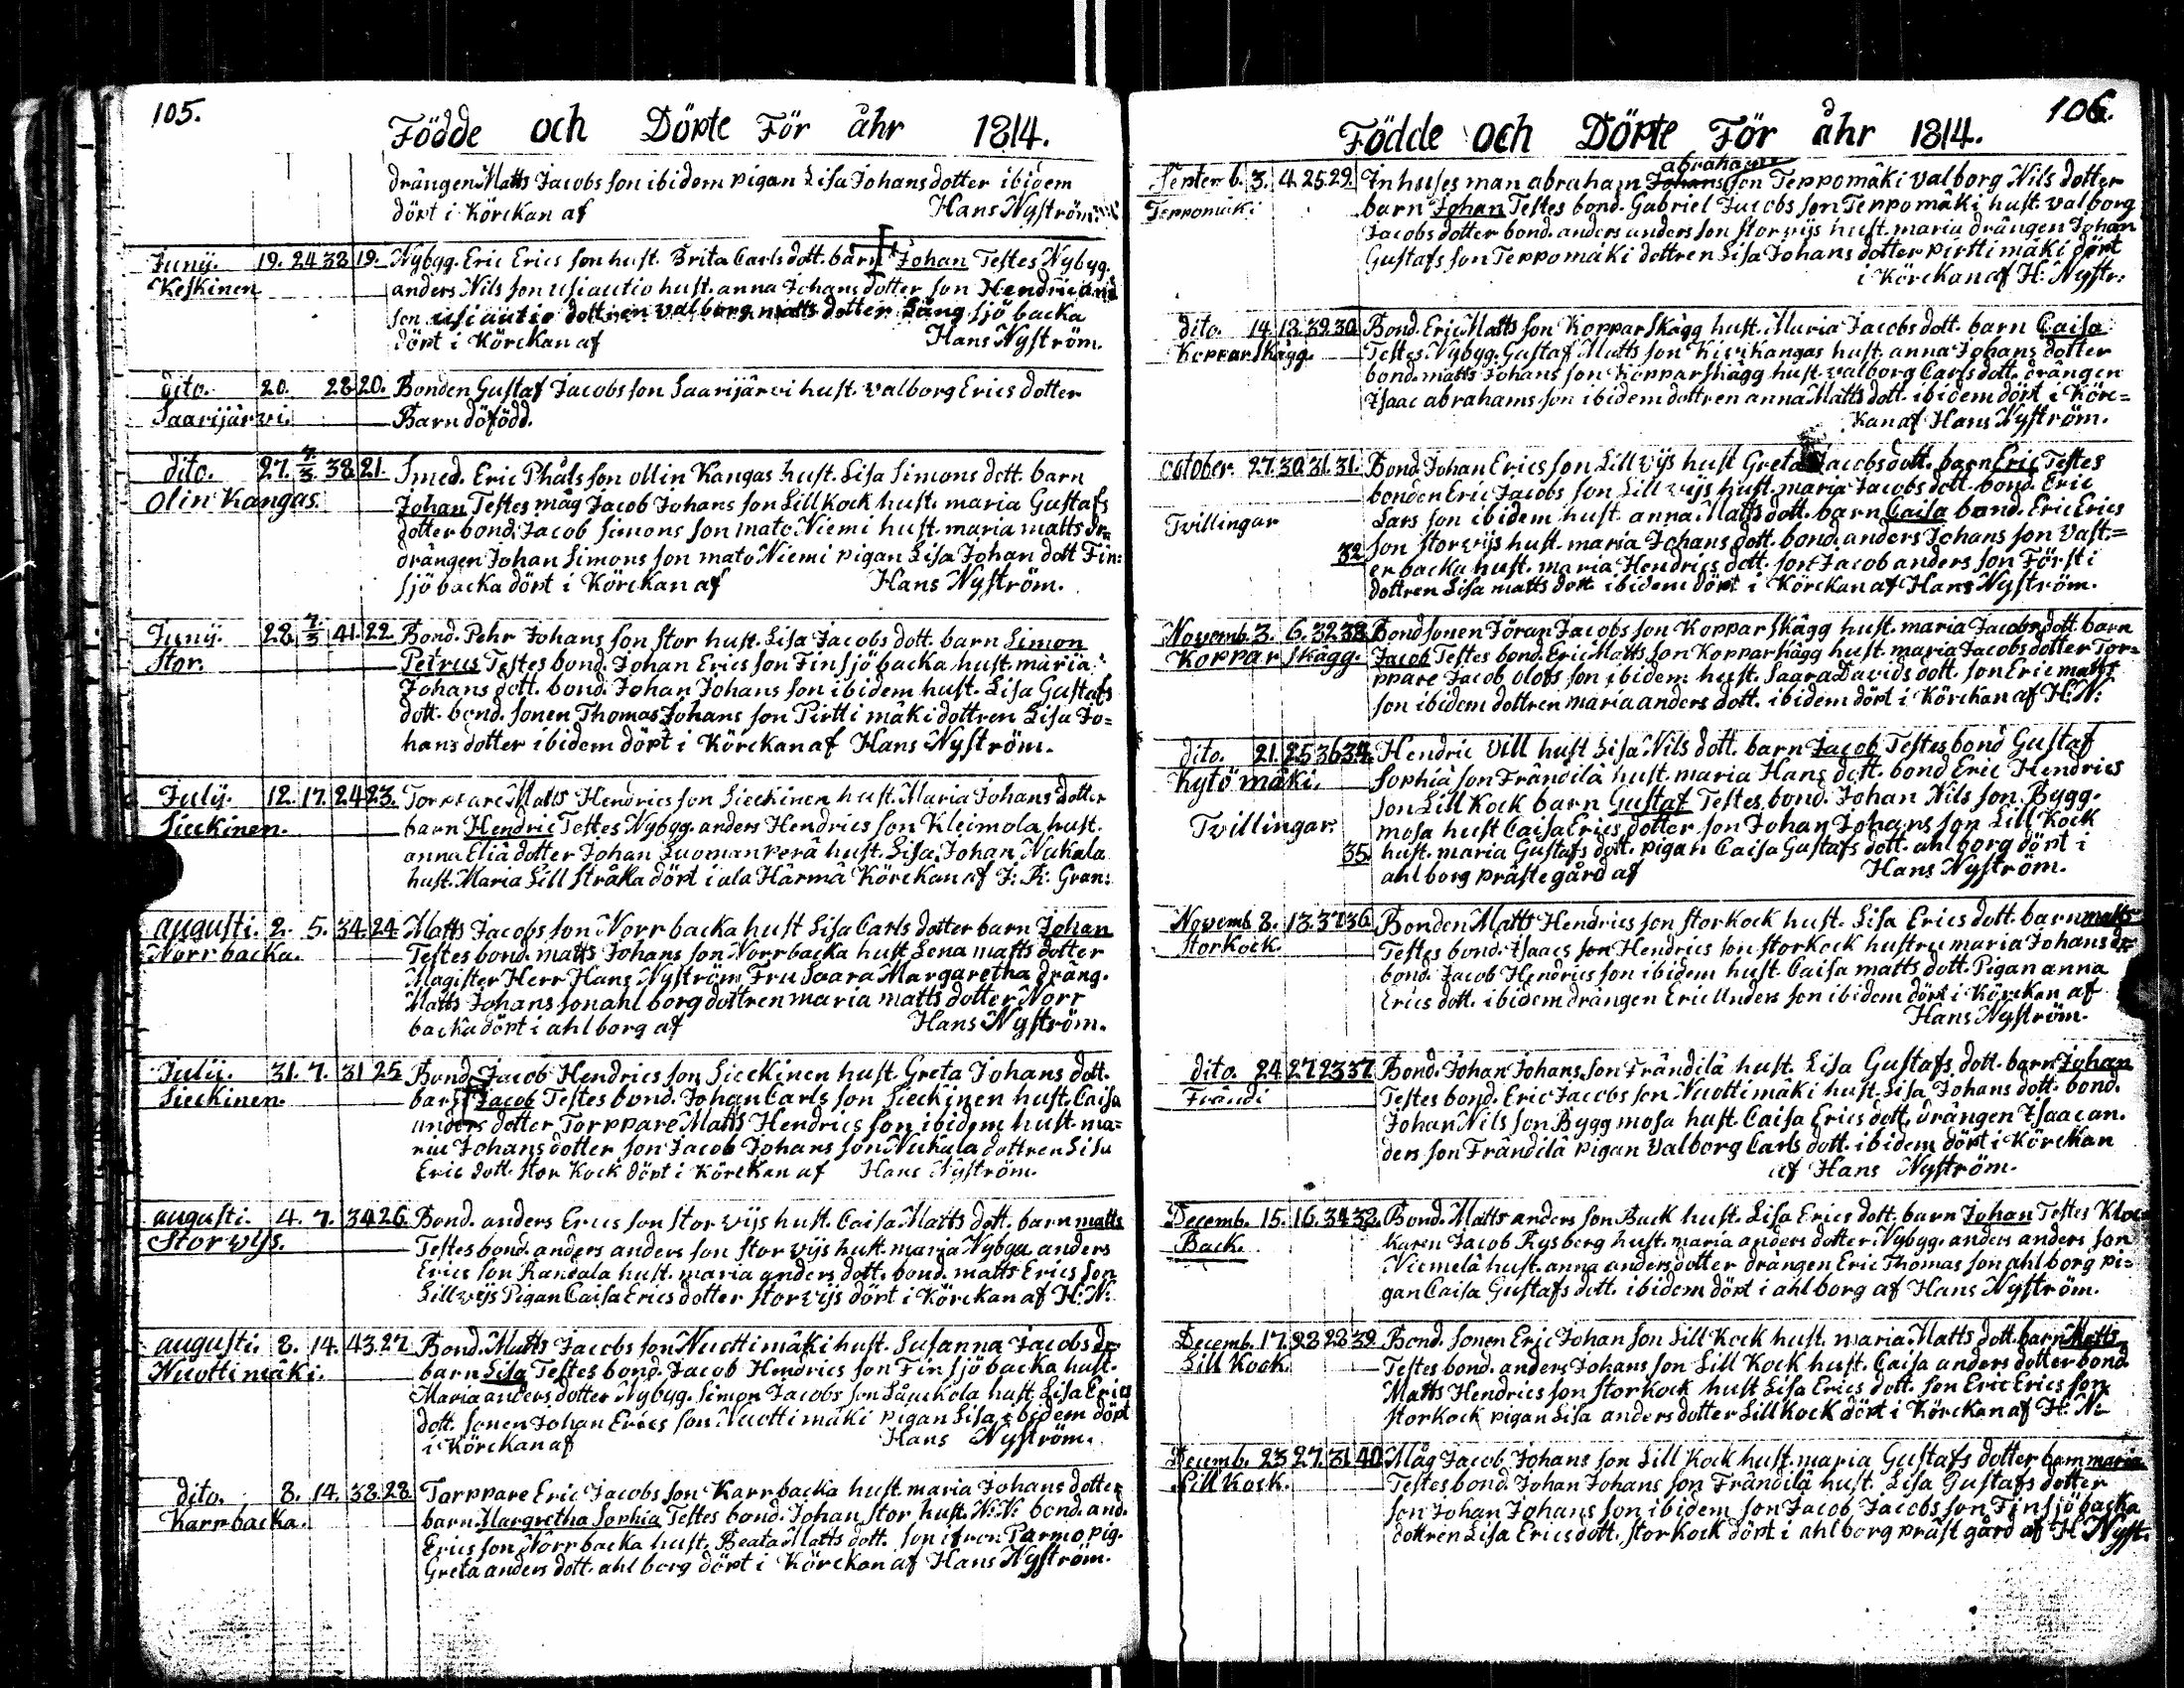 105.
Födde och Döpte För åhr 1814.
drängen Matts Jacobs son ibidem pigan Lisa Johans dotter ibidem
döpt i Körckan af Hans Nyström
Junij. 19. 24 38 19. Nybygg. Eric Erics son hust. Brita Carls dott. barn Johan Testes Nybyg.
Keskinen anders Nils son usiautio hust. anna Johans dotter son Hendric and
son usiautio dottren valborg matts dotter Lång sjö backa
döpt i Körckan af Hans Nyström.
dito. 20. 28 20. Bonden Gustaf Jacobs son Saarijärvi hust. valborg Erics dotter
Saarijärvi. Barn döfödd.
dito. 27. 7/3 38 21. Smed. Eric Phåls son ollin Kangas hust. Lisa Simons dott. barn
Olin Kangas. Johan Testes måg Jacob Johans son Lill Kock hust. maria Gustafs
dotter bond. Jacob Simons son mato Niemi hust. maria matts dr
drängen Johan Simons son mato Niemi pigan Lisa Johan dott Fin:
sjö backa döpt i Körckan af Hans Nyström.
Junij. 28. 7/3 41. 22. Bond. Pehr Johans son stor hust. Lisa Jacobs dott. barn Simon
Stor. Petrus Testes bond. Johan Erics son Finsjö backa hust. maria
Johans dott. bond. Johan Johans son ibidem hust. Lisa Gustafs
dott. bond. sonen Thomas Johans son Pirtti mäki dottren Lisa Jo=
hans dotter ibidem döpt i Körckan af Hans Nyström.
Julij. 12. 17. 24 23. Torppare Matts Hendrics son Sieckinen hust. Maria Johans dotter
Sieckinen. barn Hendric Testes Nybyg. anders Hendrics son Kleimola hust.
anna Eliä dotter Johan Luoman perä hust. Lisa, Johan Nukala
hust. Maria Lill Stråka döpt i ala Härmä Körckan af J: R: Gran:
augusti. 2. 5. 34 24 Matts Jacobs son Norrbacka hust Lisa Carls dotter barn Johan
Norrbacka. Testes bond. matts Johans son Norrbacka hust Lena matts dotter
Magister Herr Hans Nyström Fru Saara Margaretha dräng.
Matts Johans son ahlborg dottren maria matts dotter Norr
backa döpt i ahlborg af Hans Nyström.
Julij. 31. 7. 31 25 Bond. Jacob Hendrics son Sieckinen hust. Greta Johans dott.
Sieckinen. barn Jacob Testes bond. Johan Carls son Sieckinen hust. Caisa
anders dotter Torppare Matts Hendrics son ibidem hust. ma=
ria Johans dotter son Jacob Johans son Nukala dottren Lisa
Eric dott. stor Kock döpt i Körckan af Hans Nyström.
augusti. 4. 7. 34 26 Bond. anders Erics son stor vijs hust. Caisa Matts dott. barn matts
Storvijs. Testes bond. anders anders son stor vijs hust. maria Nybyg. anders
Erics son Randala hust. maria anders dott. bond. matts Erics son
Lill vijs Pigan Caisa Erics dotter stor vijs döpt i Körckan af H: N:
augusti. 8. 14. 43. 27. Bond. Matts Jacobs son Nuottimäki hust. Susanna Jacobs dr
Nuottimäki. barn Lisa Testes bond. Jacob Hendrics son Finsjö backa hust.
Maria anders dotter Nybyg. Simon Jacobs son hust. Lisa Eric
dott. sonen Johan Erics son Nuottimäki pigan Lisa ibidem döpt
i Körckan af Hans Nyström.
dito. 8. 14. 38. 28. Torppare Eric Jacobs son Karrbacka hust. maria Johans dotter
Karrbacka. barn Margretha Sophia Testes bond. Johan Stor hust. N: N: bond. and.
Erics son Norrbacka hust. Beata Matts dott. son ifren Parmo pig.
Greta anders dott. ahlborg döpt i Körckan af Hans Nyström.
106.
Födde och Döpte För åhr 1814.
abrahams
Septer 6. 3. 4. 25. 29. Inhuses man abraham Johans son Teppomäki valborg Nils dotter
Teppomäki barn Johan Testes bond. Gabriel Jacobs son Teppomäki hust. valborg
Jacobs dotter bond. anders anders son storvijs hust. maria drängen Johan
Gustafs son Teppomäki dottren Lisa Johans dotter pirttimäki döpt
i Körckan af H: Nystr:
dito. 14. 18. 39. 30. Bond. Eric Matts son Koppar Skägg hust. Maria Jacobs dott. barn Caisa
Koppar Skägg. Testes Nybyg. Gustaf Matts son Kivikangas hust. anna Johans dotter
bond. matts Johans son Kopparskägg hust. valborg Carls dott. drängen
Isaac abrahams son ibidem dottren anna Matts dott. ibidem döpt i Körc=
kan af Hans Nyström.
october. 27. 30. 31. 31. Bond. Johan Erics son Lill vijs hust Greta Jacobs dott. barn Eric Testes
bonden Eric Jacobs son Lill vijs hust. maria Jacobs dott. bond. Eric
Tvillingar Lars son ibidem hust. anna Matts dott. barn Caisa bond. Eric Erics
32. son storvijs hust. maria Johans dott. bond. anders Johans son vast=
er backa hust. maria Hendrics dott. son Jacob anders son Försti
dottren Lisa matts dott. ibidem döpt i Körckan af Hans Nyström.
Novemb. 3. 6. 32 33. Bond sonen Jöran Jacobs son Koppar Skägg hust. maria Jacobs dott. barn
Koppar Skägg. Jacob Testes bond. Eric Matts son Kopparskägg hust. maria Jacobs dotter Tor=
ppare Jacob olofs son ibidem hust. Saara Davids dott. son Eric matts
son ibidem dottren maria anders dott. ibidem döpt i Körckan af H: N:
dito. 21. 25 36 34. Hendric vill hust Lisa Nils dott. barn Jacob Testes bond Gustaf
Kytömäki. Sophia son Frändilä hust. maria Hans dott. bond Eric Hendrics
son Lill Kock barn Gustaf Testes bond. Johan Nils son Bygg-
Tvillingar. mosa hust Caisa Erics dotter son Johan Johans son Lill Kock
35. hust. maria Gustafs dott. pigan Caisa Gustafs dott. ahlborg döpt i
ahlborg prästegård af Hans Nyström.
Novemb. 8. 13. 37 36. Bonden Matts Hendrics son storkock hust. Lisa Erics dott. barn matts
storkock. Testes bond. Isaacs son Hendrics son storkock hustru maria Johans dr
bond. Jacob Hendrics son ibidem hust. Caisa matts dott. Pigan anna
Erics dott. ibidem drängen Eric Anders son ibidem döpt i Körckan af
Hans Nyström.
dito. 24 27. 23 37. Bond. Johan Johans son Frändilä hust. Lisa Gustafs dott. barn Johan
Frändi Testes bond. Eric Jacobs son Nuottimäki hust. Lisa Johans dott. bond.
Johan Nils son Bygg mosa hust. Caisa Erics dott. drängen Isaac an.
ders son Frändilä pigan valborg Carls dott. ibidem döpt i Körckan
af Hans Nyström.
Decemb. 15. 16. 34 38. Bond. Matts anders son Back hust. Lisa Erics dott. barn Johan Testes Kloc
Back. karen Jacob Rysberg hust. maria anders dotter Nybyg. anders anders son
Niemelä hust. anna anders dotter drängen Eric Thomas son ahlborg pi=
gan Caisa Gustafs dott. ibidem döpt i ahlborg af Hans Nyström.
Decemb. 17. 28 28 39. Bond. sonen Eric Johan son Lill Kock hust. maria Matts dott. barn Matts
Lill Kock. Testes bond. anders Johans son Lill Kock hust. Caisa anders dotter bond.
Matts Hendrics son storkock hust Lisa Erics dott. son Eric Erics son
storkock pigan Lisa anders dotter Lill Kock döpt i Körckan af H: N:
Decemb. 23 27. 31. 40. Måg Jacob Johans son Lill Kock hust. maria Gustafs dotter barn maria
Lill Kock. Testes bond. Johan Johans son Frändilä hust. Lisa Gustafs dotter
son Johan Johans son ibidem son Jacob Jacobs son Finsjö backa
dottren Lisa Erics dott. storkock döpt i ahlborg präst gård af H Nyst.